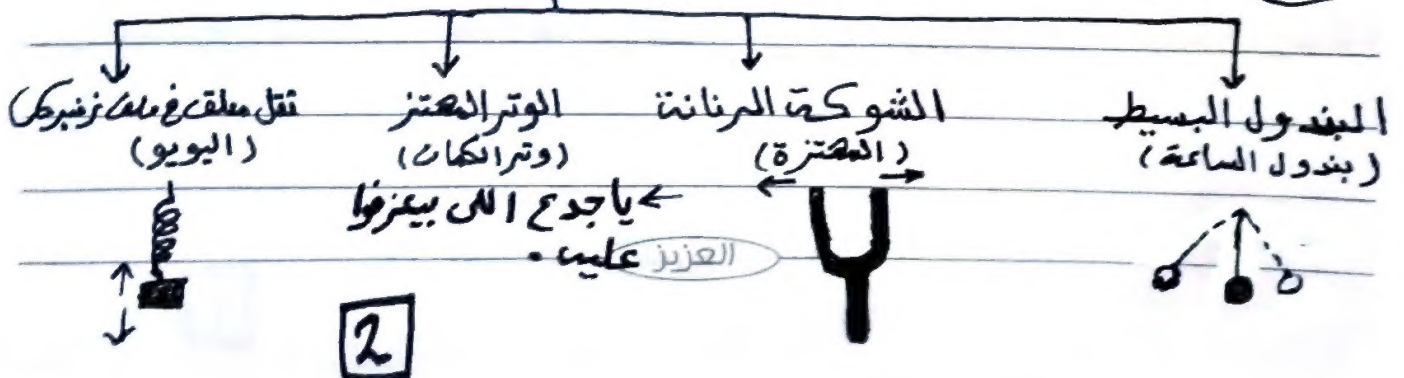 البندول البسيط
(بندول الساعة)
الشوكة الرنانة
(المهتزة)
الوتر المهتز
(وتر الكمان)
← يا جدع اللى بيعزفوا
عليه .
ثقل معلق فى ملف زنبركى
(اليويو)
العزيز
2